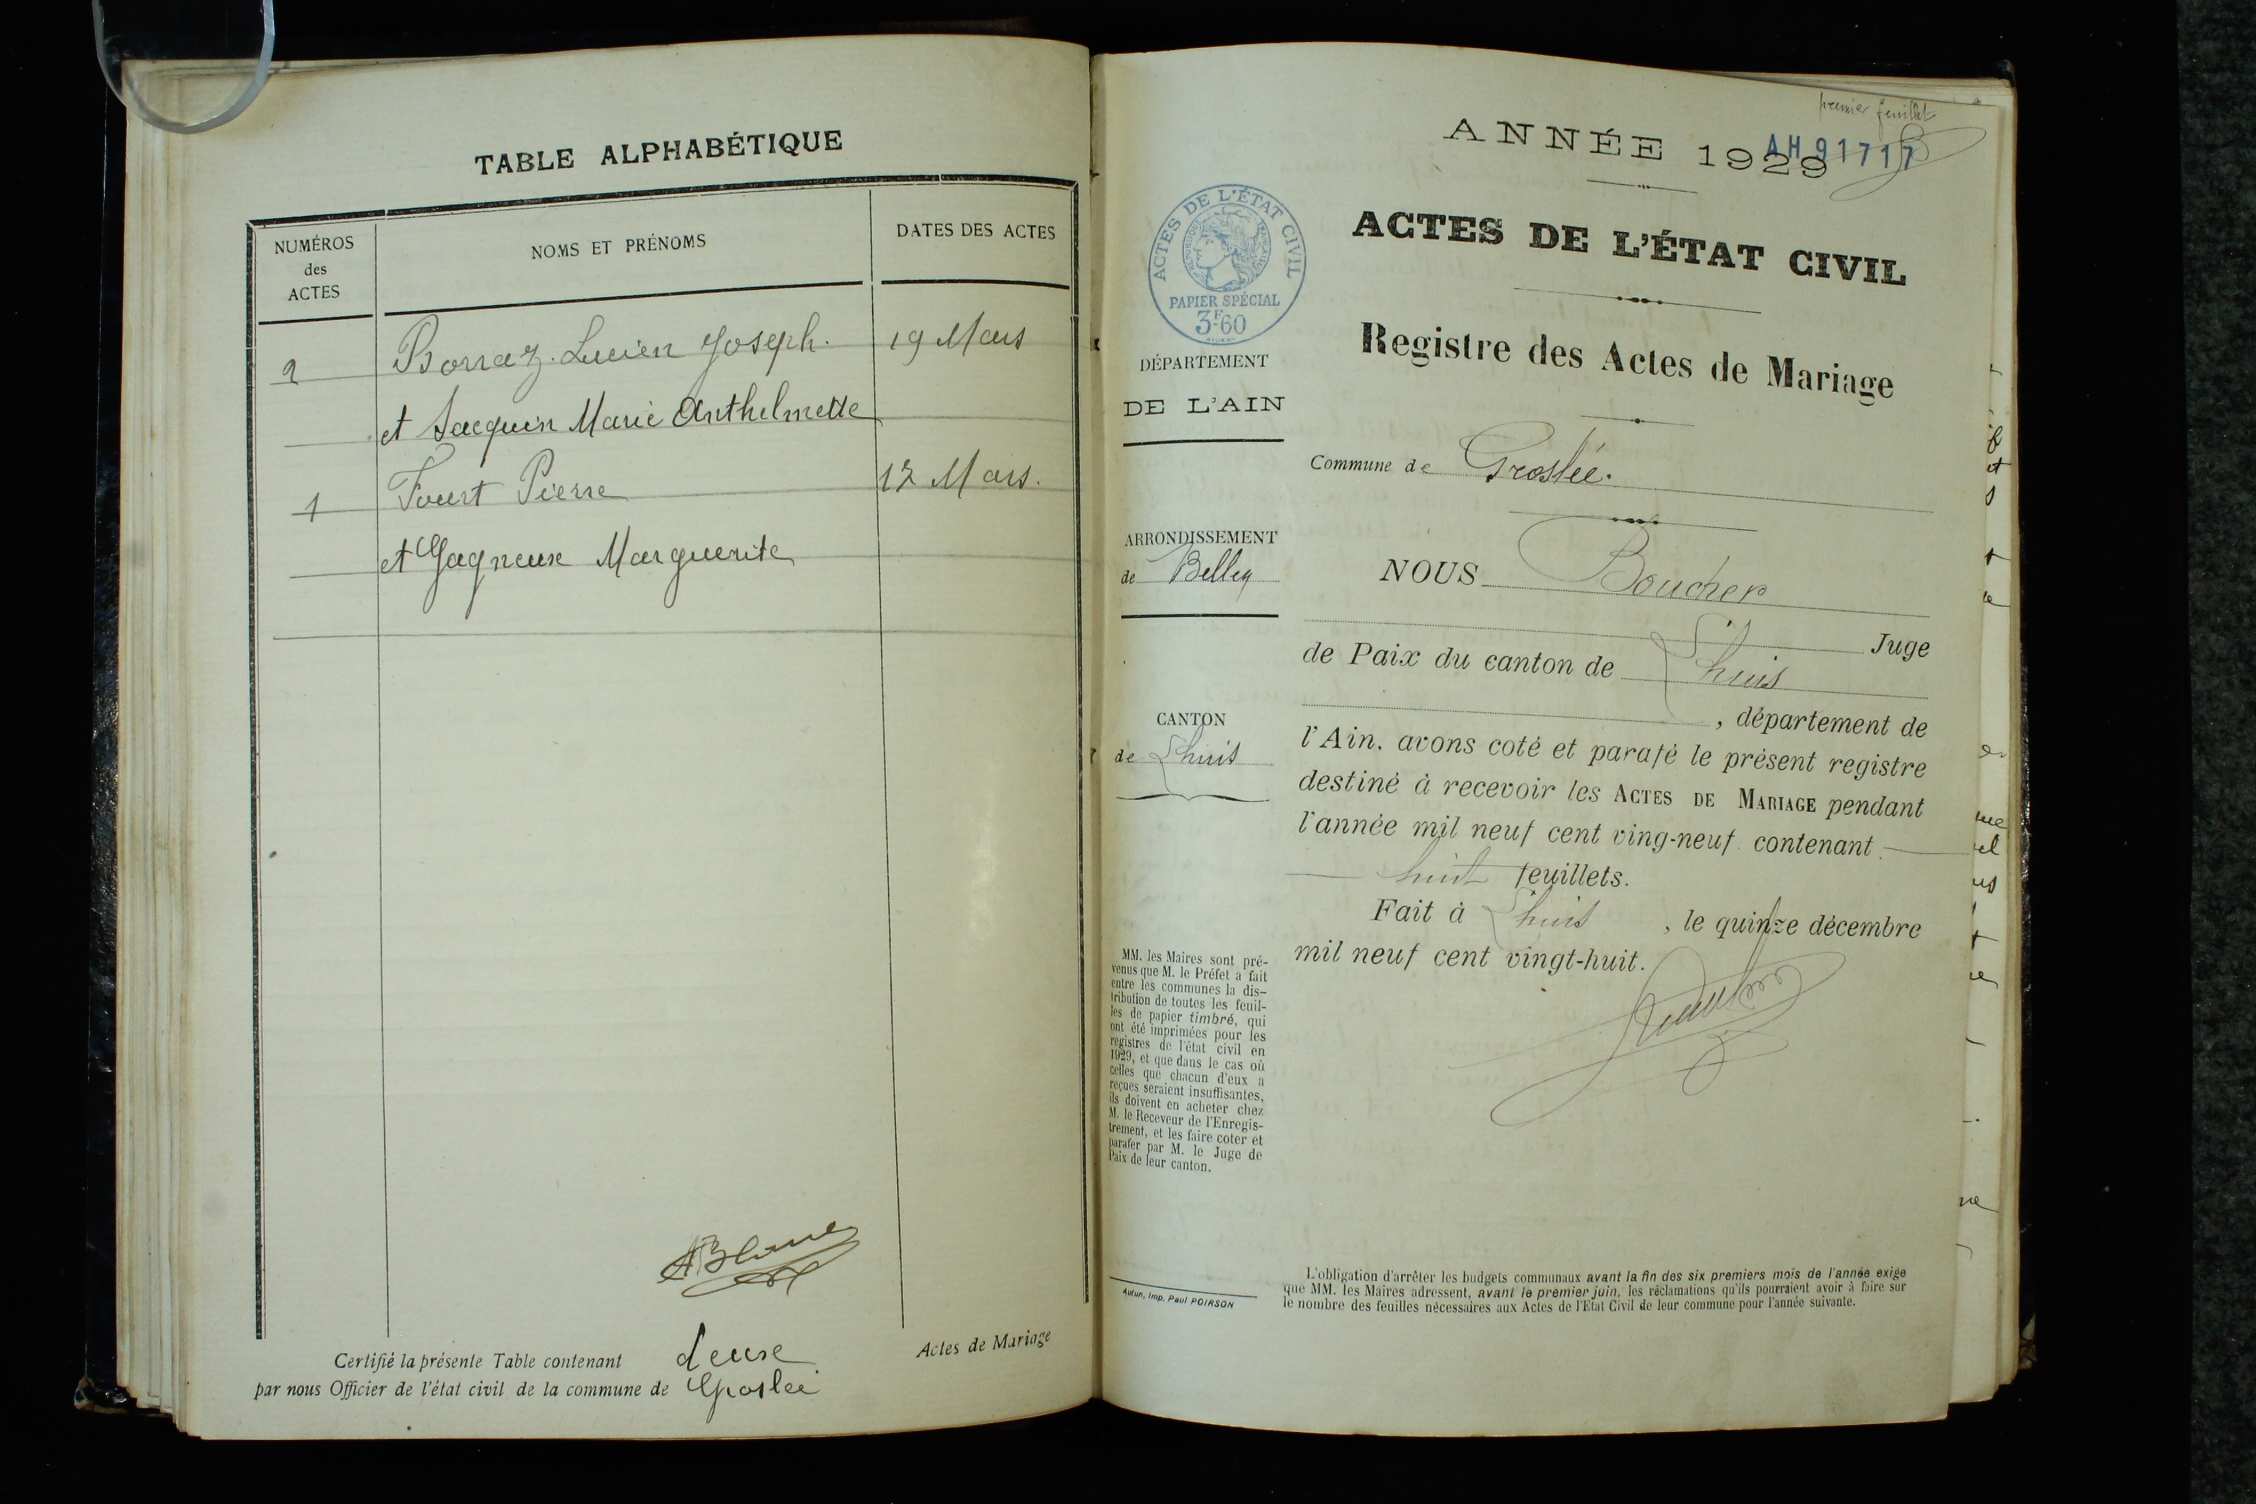 TABLE ALPHABÉTIQUE
NUMÉROS
des
ACTES
NOMS ET PRÉNOMS
DATES DES ACTES
2 Borraz Lucien Joseph. 19 Mars
et Jacquin Marie Anthelmette
1 Fourt Pierre 12 Mars.
et Gagneux Marguerite
Certifié la présente Table contenant deux Actes de Mariage
par nous Officier de l'état civil de la commune de Groslée
premier feuillet
ANNÉE 1929
AH 91717
ACTES DE L'ÉTAT CIVIL
PAPIER SPÉCIAL
3F60
ACTES DE L'ÉTAT CIVIL
Registre des Actes de Mariage
DÉPARTEMENT
DE L'AIN
Commune de Groslée.
ARRONDISSEMENT
de Belley
CANTON
de Lhuis
NOUS Boucher
Juge
de Paix du canton de Lhuis
, département de
l'Ain, avons coté et parafé le présent registre
destiné à recevoir les ACTES DE MARIAGE pendant
l'année mil neuf cent ving-neuf contenant
huit feuillets.
Fait à Lhuis , le quinze décembre
mil neuf cent vingt-huit.
MM. les Maires sont pré-
venus que M. le Préfet a fait
entre les communes la dis-
tribution de toutes les feuil-
les de papier timbré, qui
ont été imprimées pour les
registres de l'état civil en
1929, et que dans le cas où
celles que chacun d'eux a
reçues seraient insuffisantes,
ils doivent en acheter chez
M. le Receveur de l'Enregis-
trement, et les faire coter et
parafer par M. le Juge de
Paix de leur canton.
Autun, Imp. Paul POIRSON
L'obligation d'arrêter les budgets communaux avant la fin des six premiers mois de l'année exige
que MM. les Maires adressent, avant le premier juin, les réclamations qu'ils pourraient avoir à faire sur
le nombre des feuilles nécessaires aux Actes de l'Etat Civil de leur commune pour l'année suivante.